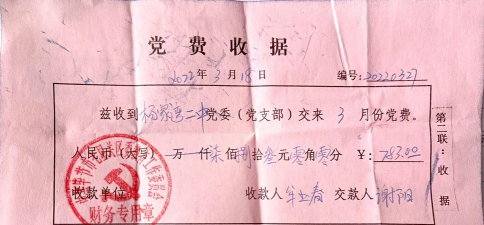 党费收据
2022年3月18日 编号:20220327
兹收到杨家湾二中党委（党支部）交来 3 月份党费。
人民币（大写）万仟柒佰捌拾叁元零角零分 ￥:783.00
收款单位 收款人 交款人谢阳
财务专用章
第二联：收据